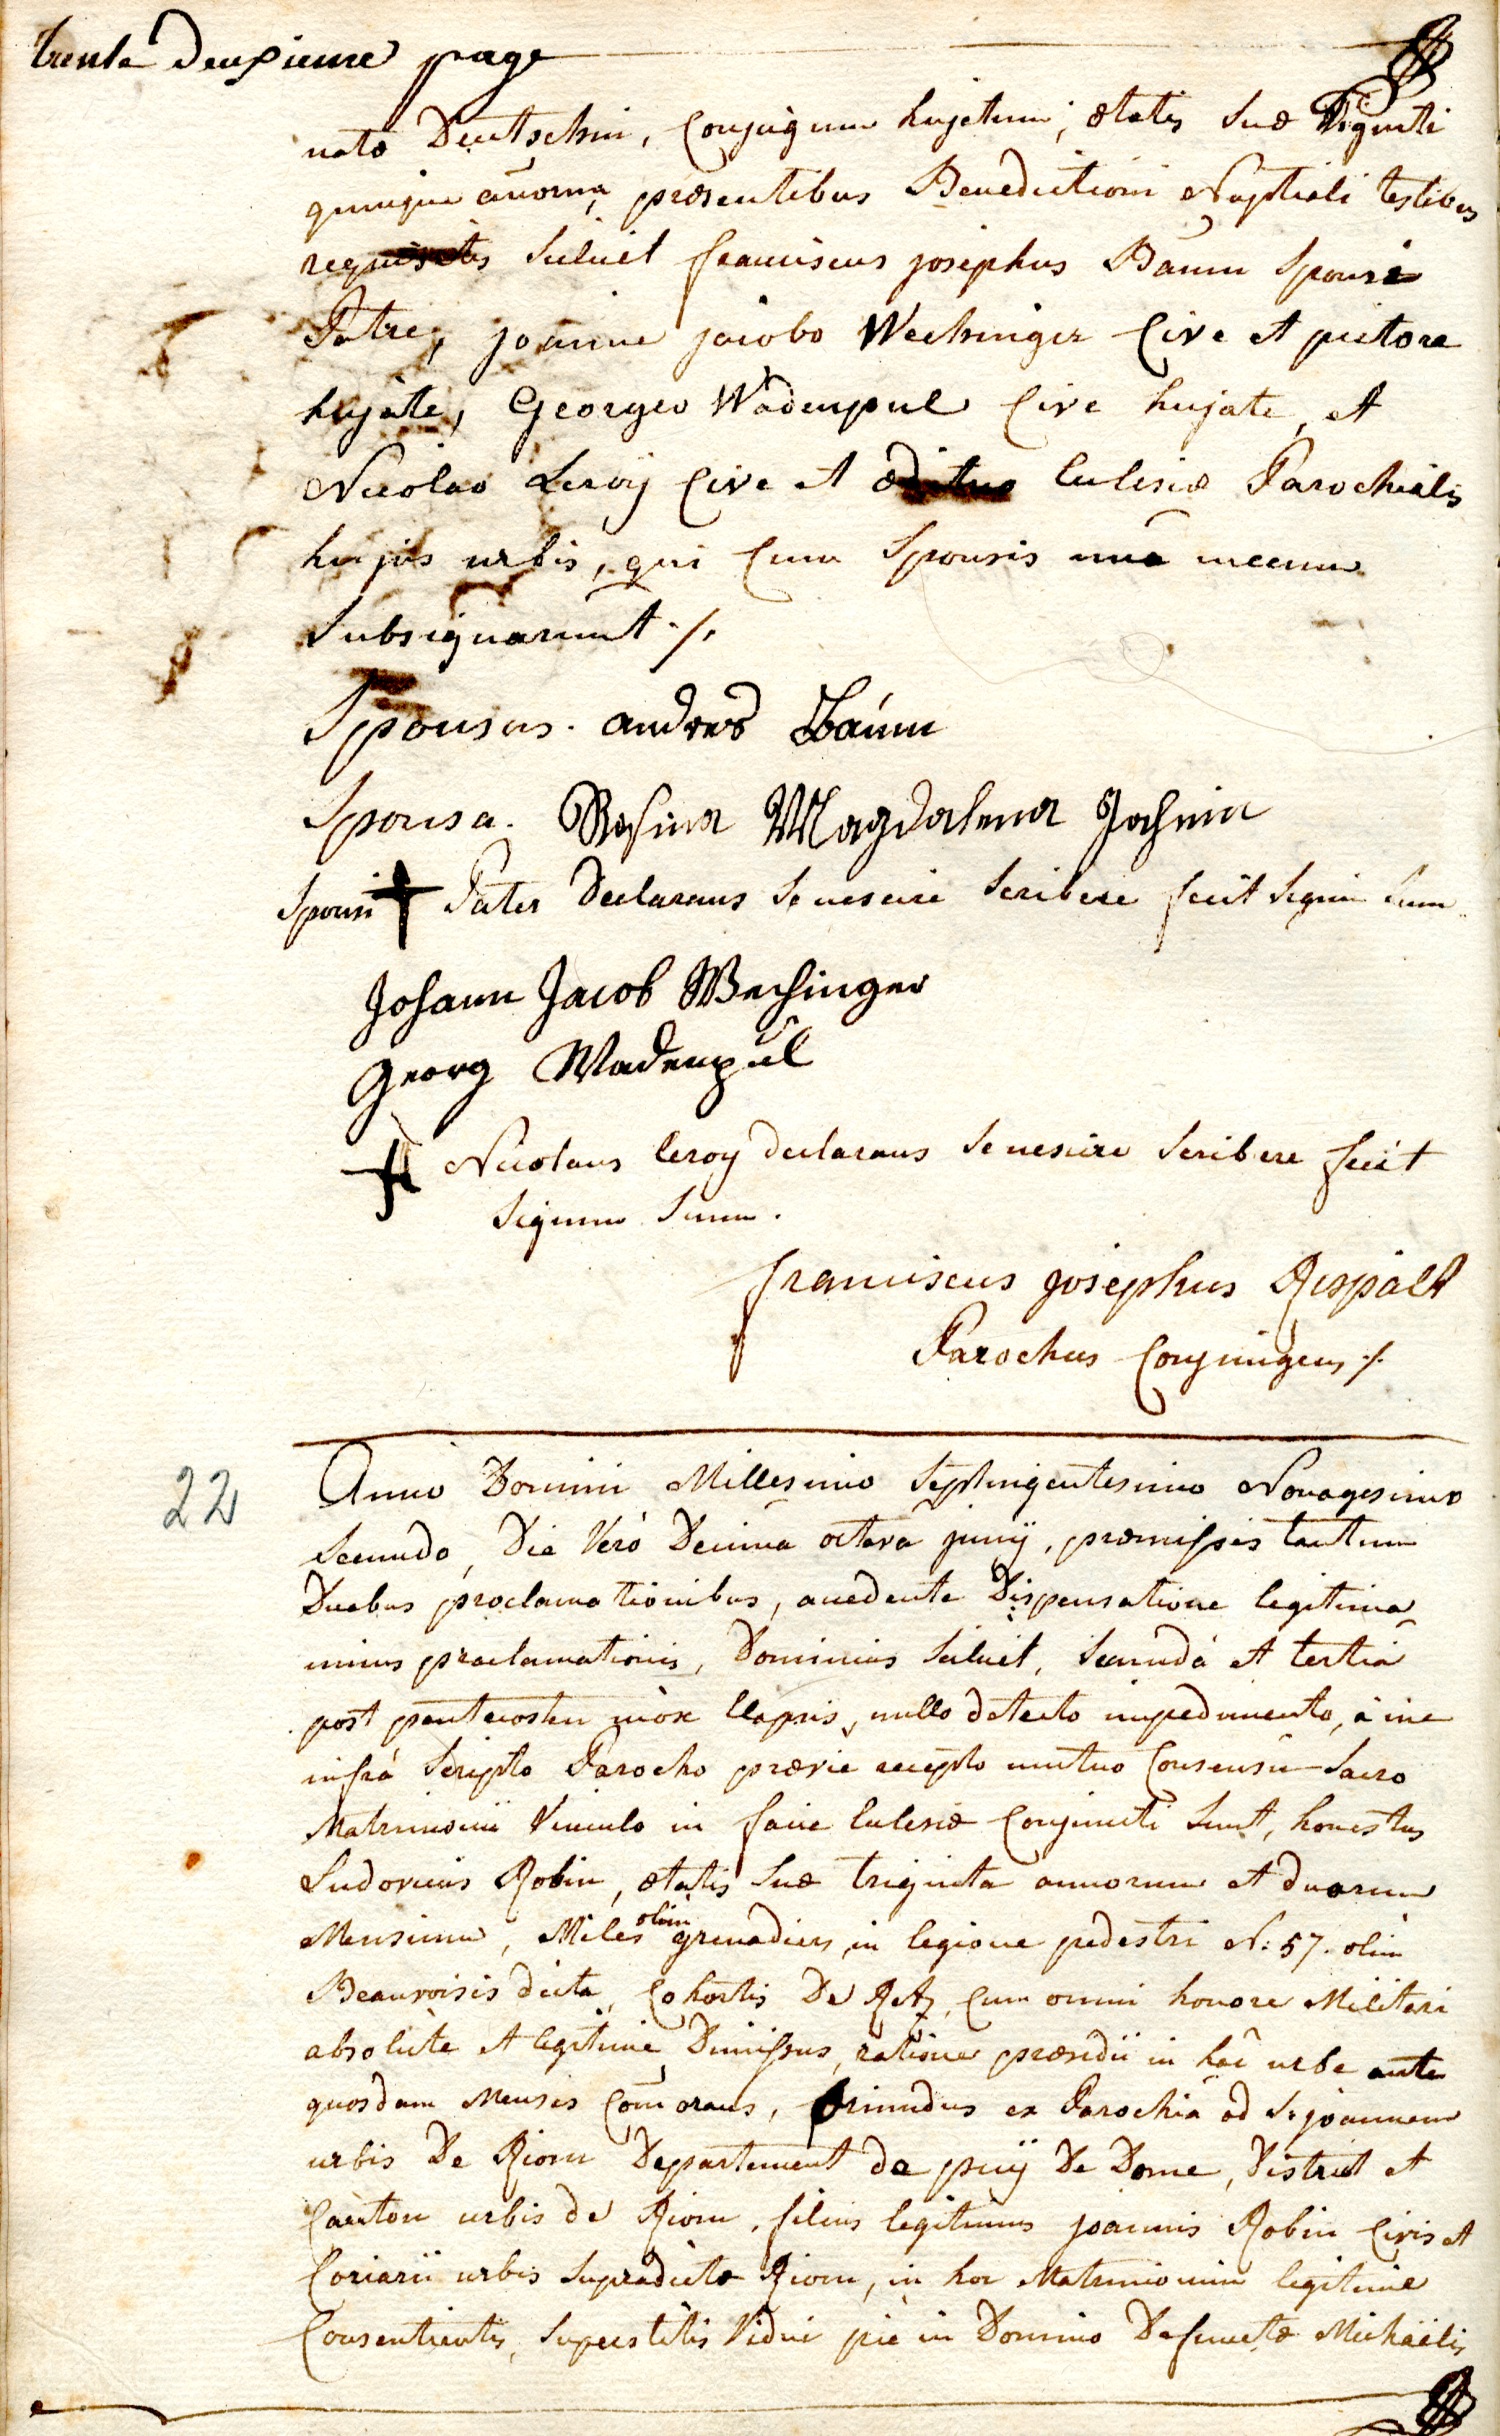 trente deuxieme page
natæ Deutschin, Conjugum hujatum, ætatis suæ Viginti
quinque annorum, præsentibus Benedictioni Nuptiali testibus
requisitis scilicet franciscus josephus Baum Sponsi
Patre, joanne jacobo Wechinger Cive et pictore
hujate, Georgeo Wadenpul Cive hujate, et
Nicolao Leroy Cive et ædituo Eclesiæ Parochialis
hujus urbis, qui Cum Sponsis una mecum
Subsignarunt ./.
Sponsus. andres Baum
Sponsa. Rosina Magdalena Jochmin
Sponsi Pater Declarans se nescire scribere fecit signum suum
Johann Jacob Wechinger
Georg Wadenpúl
Nicolaus leroy declarans se nescire scribere fecit
signum suum.
franciscus josephus Rispalt
Parochus Conjungens ./.
22
Anno Domini Millesimo Septingentesimo Nonagesimo
secundo, Die Verò Decima octava junij, præmissis tantum
Duabus proclamationibus, accedente Dispensatione legitima
unius proclamationis, Dominicis scilicet, secundâ et tertiâ
post pentecosten mòx Elapsis, nullo detecto impedimento, à me
infrà scripto Parocho prævie recepto mutuo Consensu Sacro
Matrimonii Vinculo in facie Eclesiæ Conjuncti sunt, honestus
Ludovicus Robin, ætatis suæ triginta annorum et duorum
Mensium, Miles olim grenadiers, in legione pedestri N: 57. olim
Beauvoisis dicta, Cohortis De Retz, Cum omni honore Militari
absolute et legitime Dimissus, ratione præsidii in hac urbe ante
quosdam Menses Commorans, oriundus ex Parochiâ ad S. joannem
urbis De Riom Departement de puÿ De Dome, District et
Canton urbis de Riom, filius legitimus joannis Robin Civis et
Coriarii urbis supradictæ Riom, in hoc Matrimonium legitime
Consentientis, superstitis Vidui piè in Domino Defunctæ Michaëlis